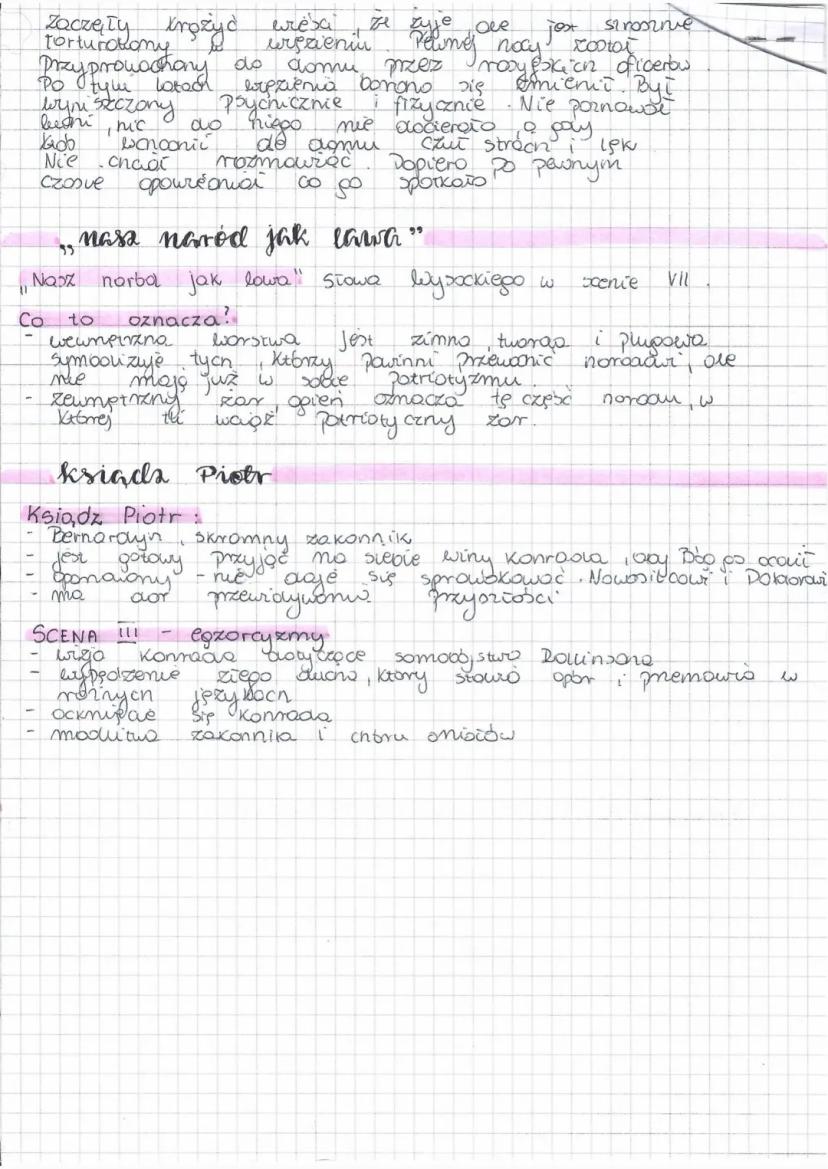 Zaczęły krążyć wieści, że żyje ale jest strasznie
torturowany w więzieniu. Pewnej nocy został
przyprowadzony do domu przez rosyjskich oficerów.
Po tylu latach więzienia bardzo się zmienił. Był
wyniszczony psychicznie i fizycznie. Nie poznawał
ludzi, nic do niego nie docierało, a gdy
ktoś wchodził do domu czuł strach i lęk
Nie chciał rozmawiać. Dopiero po pewnym
czasie opowiedział co go spotkało
„nasz naród jak lawa"
„Nasz naród jak lawa" słowa Wysockiego w scenie VII.
Co to oznacza?
- wewnętrzna warstwa jest zimna, twarda i plugawa
symbolizuje tych, którzy powinni przewodnić narodowi, ale
nie mają już w sobie patriotyzmu.
- zewnętrzny żar, ogień oznacza tę część narodu, w
której tli wciąż patriotyczny żar.
Ksiądz Piotr
Ksiądz Piotr:
- Bernardyn, skromny zakonnik
- jest gotowy przyjąć na siebie winy Konrada, aby Bóg go ocalił
- opanowany - nie daje się sprowokować Nowosilcowi i Doktorowi
- ma dar przewidywania przyszłości
SCENA III - egzorcyzmy
- wizja Konrada dotyczące samobójstwa Rollinsona
- wypędzenie złego ducha, który stawia opór i przemawia w
różnych językach
- ocknięcie się Konrada
- modlitwa zakonnika i chóru aniołów